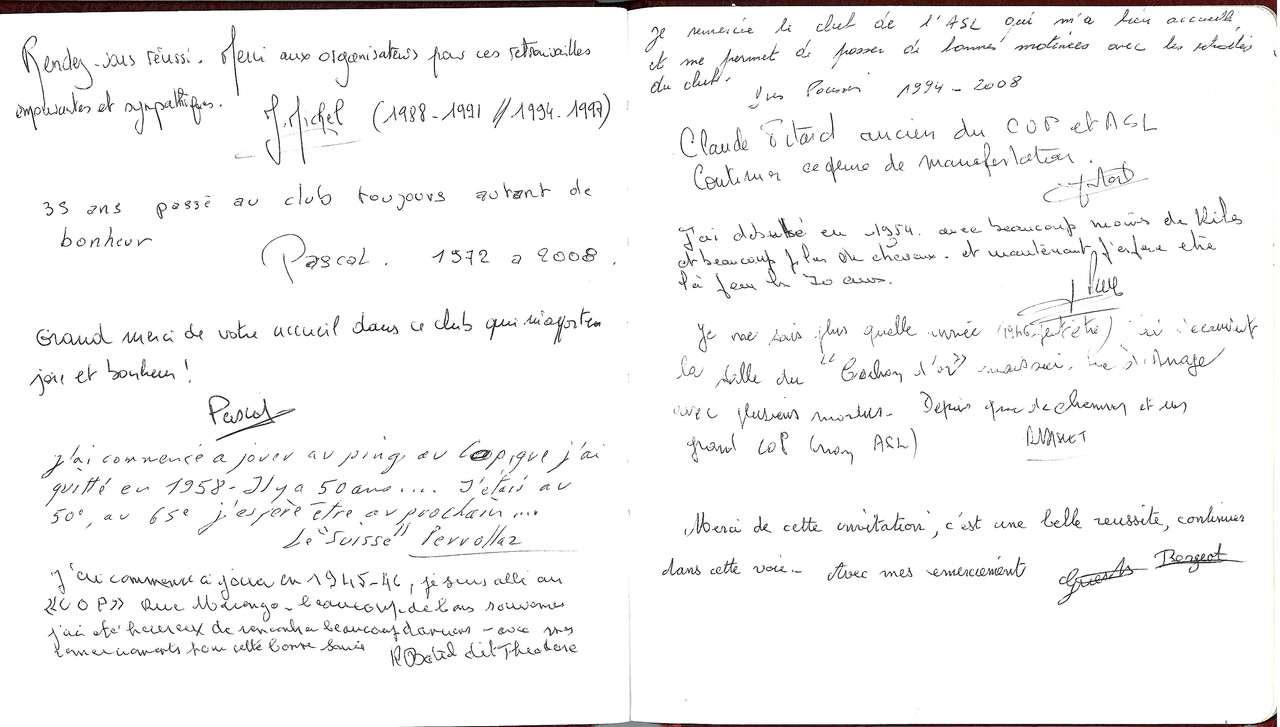 Rendez-vous réussi. Merci aux organisateurs pour ces retrouvailles
empourantes et sympathiques.
J. Michel (1988-1991 // 1994-1997)
35 ans passé au club toujours autant de
bonheur
Pascal. 1972 a 2008.
Grand merci de votre accueil dans ce club qui m'apporten
joie et bonheur!
Pascal
J'ai commencé a jouer au ping au Cop, que j'ai
quitté en 1958 - Il y a 50 ans.... J'étais au
50e, au 65e j'espère être au prochain...
Le "Suisse" Perrollaz
J'ai commencé à jouer en 1945-46, je suis allé au
«COP» Rue Marengo - beaucoup de bons souvenirs
j'ai été heureux de rencontrer beaucoup d'anciens - avec mes
remerciements pour cette bonne soirée
dit Théodore
Je remercie le club de l'ASL qui m'a bien accueilli
et me permet de passer de bonnes matinées avec les retraités
du club.
Yves 1994-2008
Claude Pitard ancien du COP et ASL
Continuer ce genre de manifestation.
J'ai débuté en 1954. avec beaucoup moins de Kilos
et beaucoup plus de cheveux. et maintenant j'espère être
là pour les 70 ans.
Je ne sais plus quelle année (1946 peut être) j'ai
la salle du "Cochon d'or"
avec plusieurs mordus. Depuis que de chemin et un
grand COP (non ASL)
Merci de cette invitation, c'est une belle reussite, continuer
dans cette voie.- Avec mes remerciement Bongeot